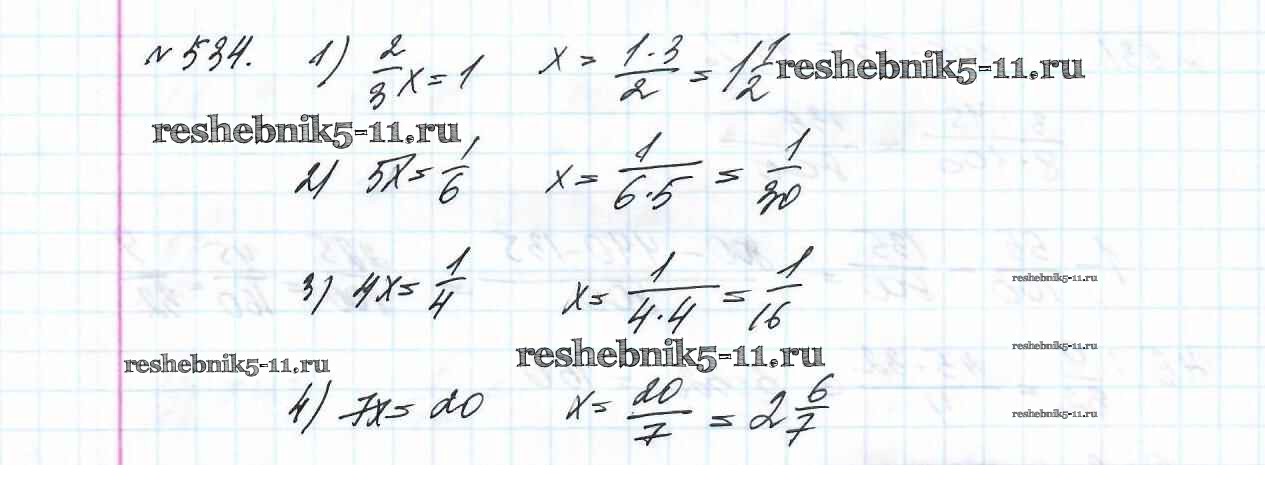 № 534. 1) 2/3 x = 1 x = 1·3/2 = 1 1/2 reshebnik5-11.ru
reshebnik5-11.ru
2) 5x = 1/6 x = 1/6·5 = 1/30
3) 4x = 1/4 x = 1/4·4 = 1/16 reshebnik5-11.ru
reshebnik5-11.ru reshebnik5-11.ru reshebnik5-11.ru
4) 7x = 20 x = 20/7 = 2 6/7 reshebnik5-11.ru